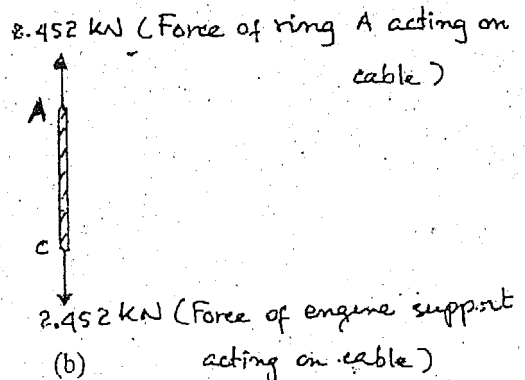 2.452 kN (Force of ring A acting on
cable)
A
C
2.452 kN (Force of engine support
(b) acting on cable)